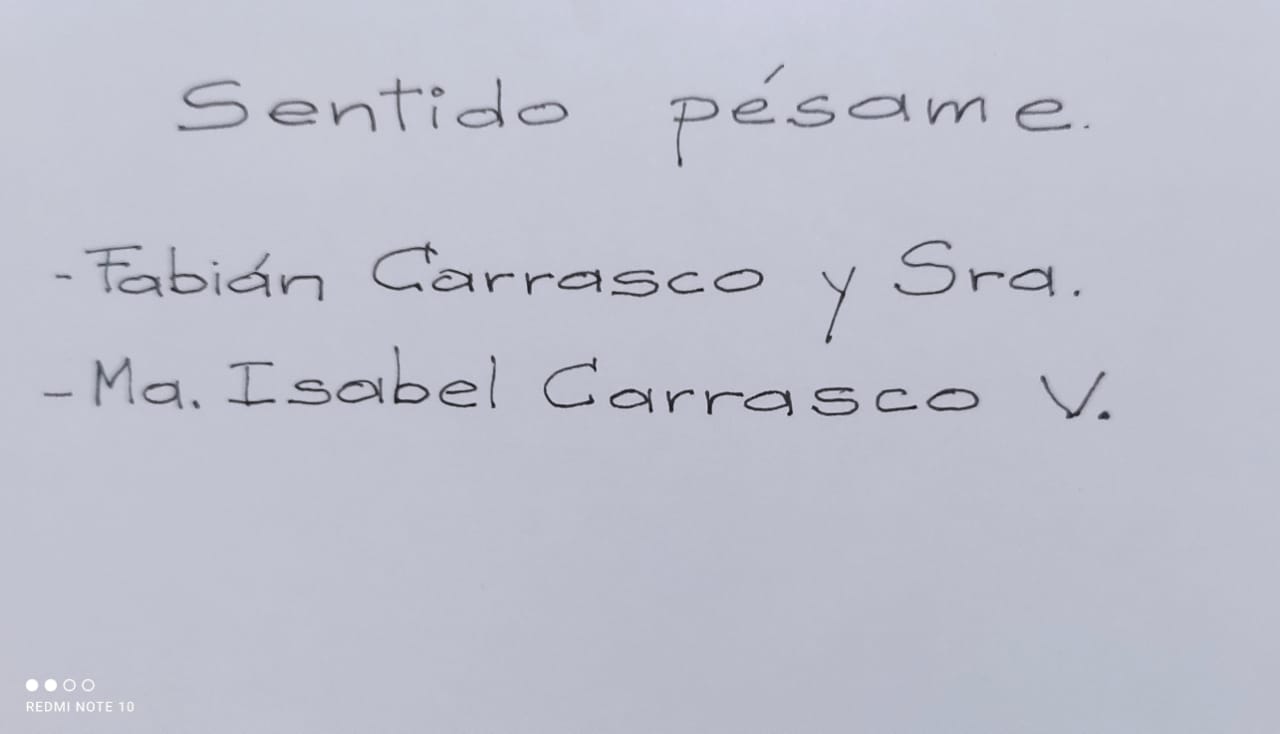 Sentido pésame.
- Fabián Carrasco y Sra.
- Ma. Isabel Carrasco V.
REDMI NOTE 10